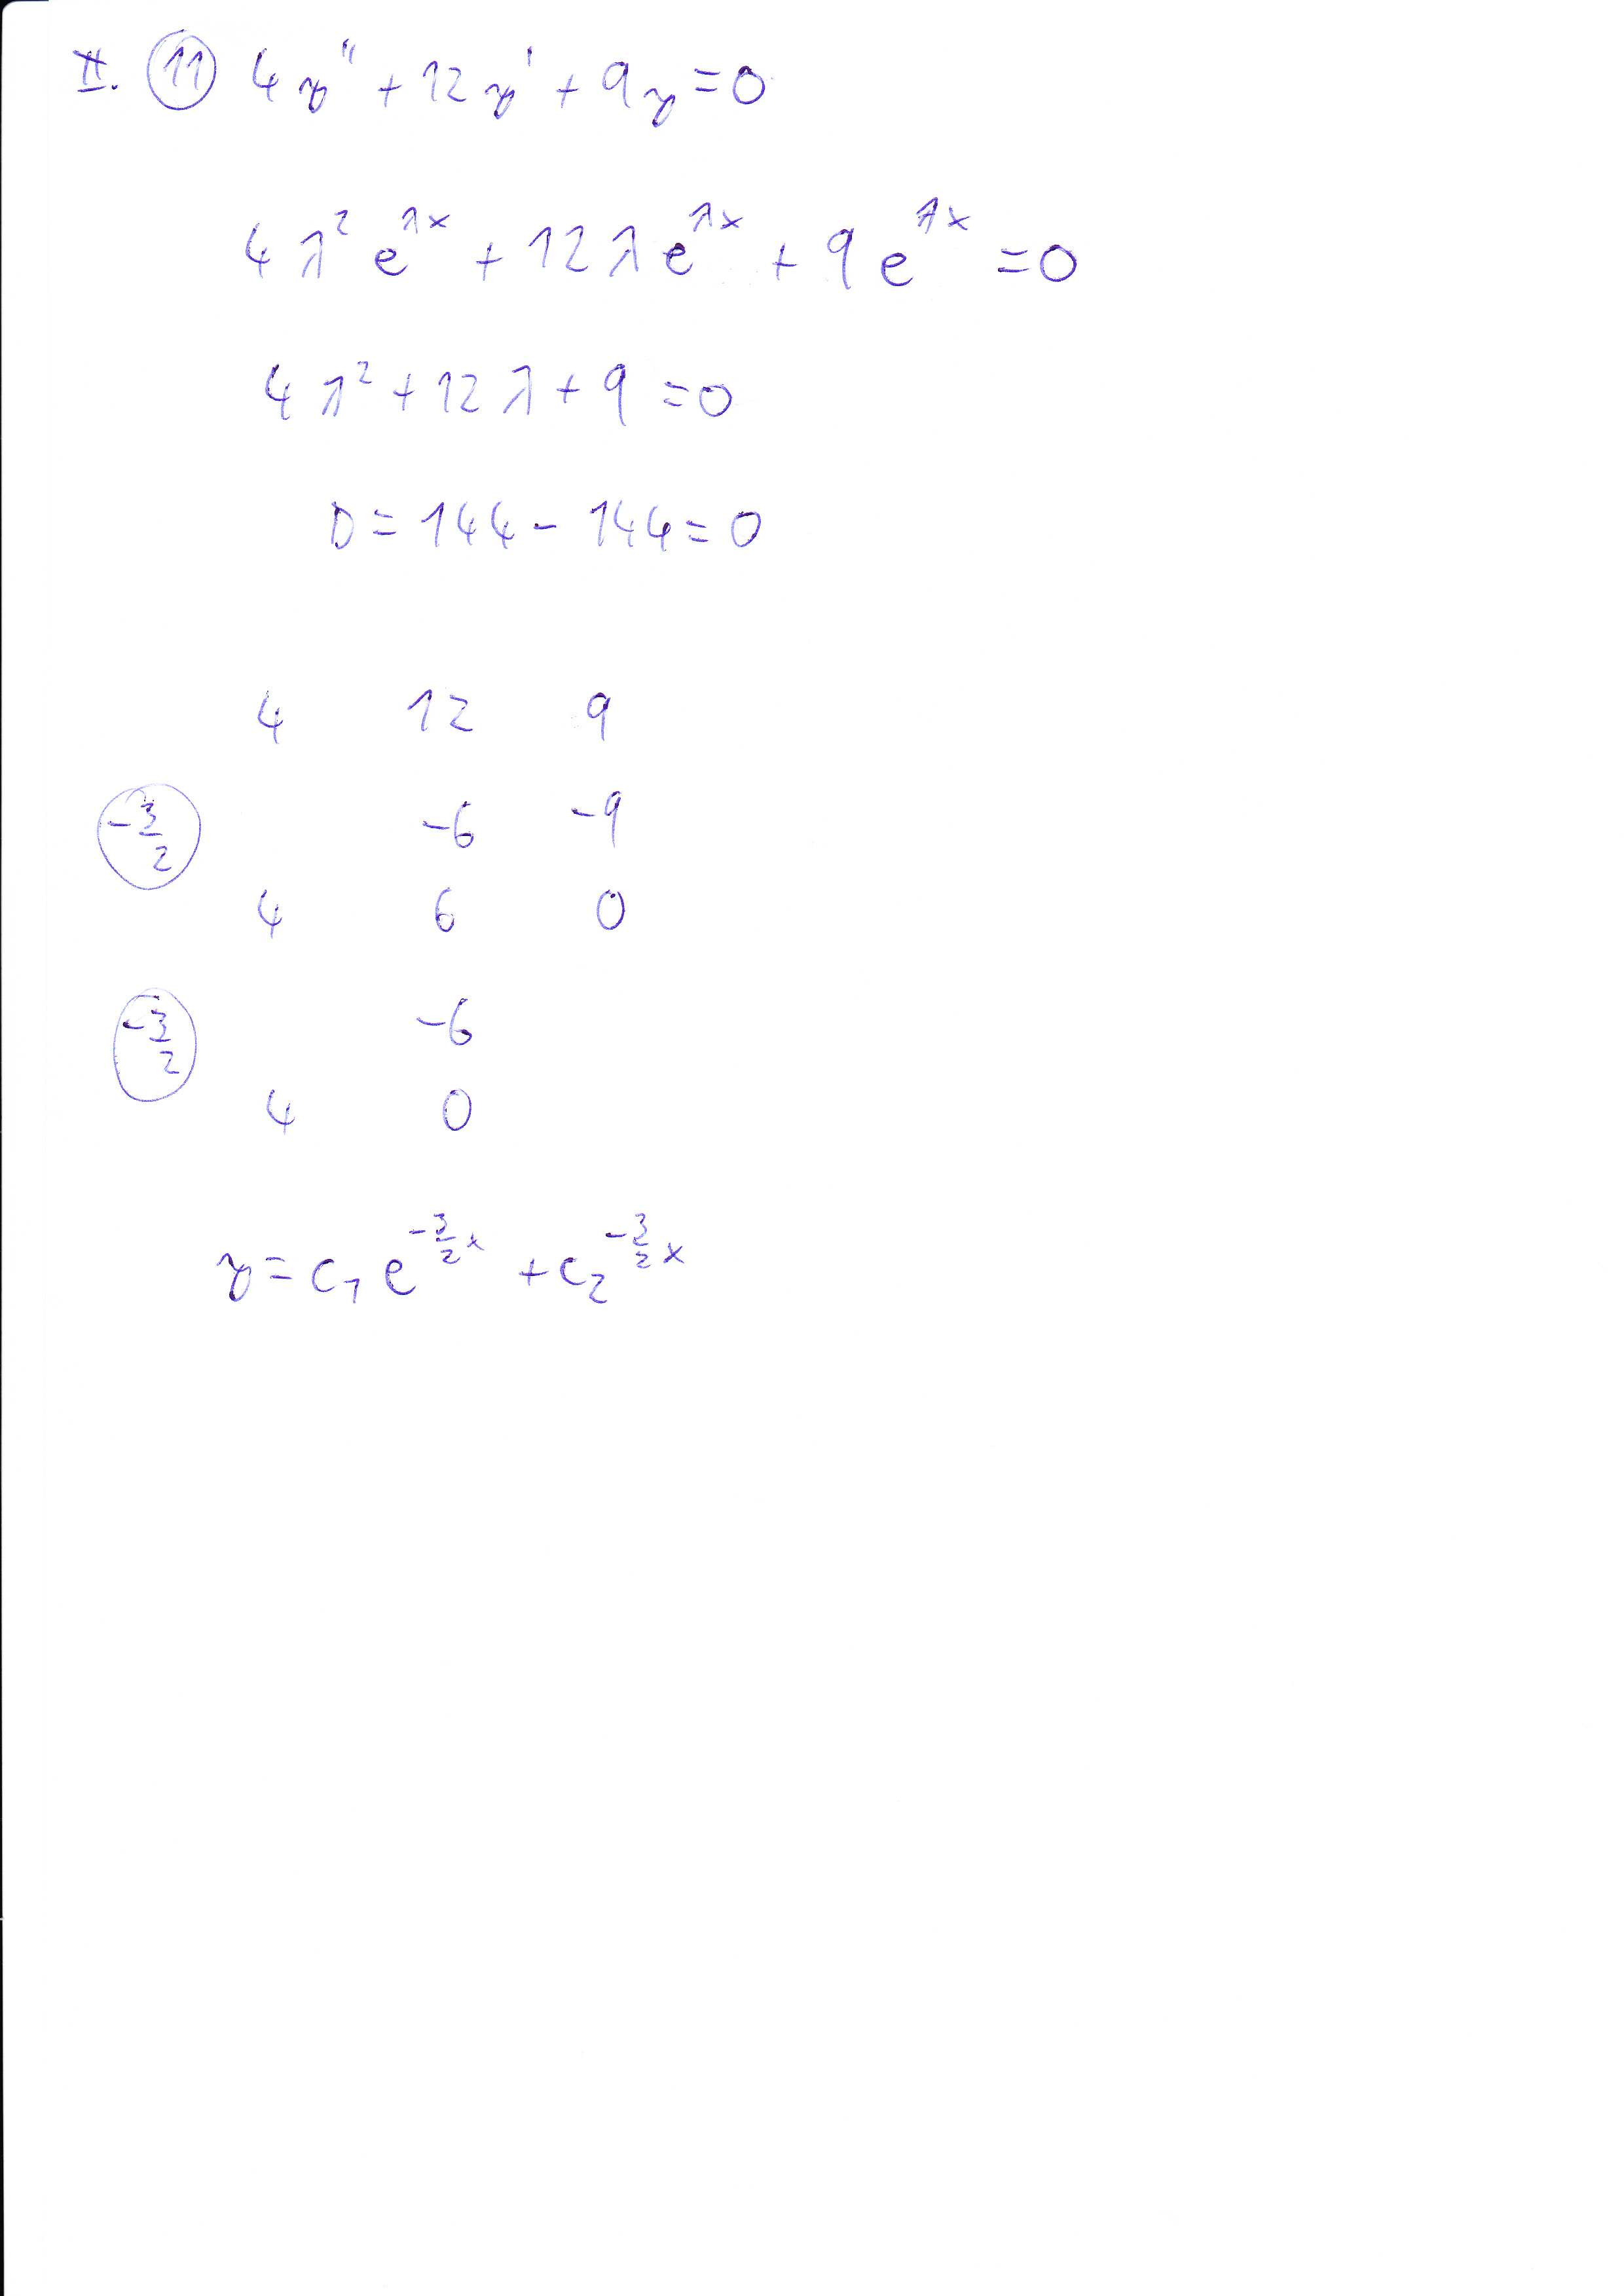 II. 11 4y'' + 12y' + 9y = 0
4λ² e^{λx} + 12λ e^{λx} + 9 e^{λx} = 0
4λ² + 12λ + 9 = 0
D = 144 - 144 = 0
4 12 9
-3/2 -6 -9
4 6 0
-3/2 -6
4 0
y = c₁ e^{-3/2 x} + c₂^{-3/2 x}